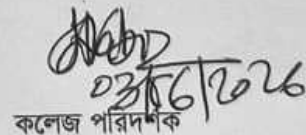 03/06/2026
কলেজ পরিদর্শক